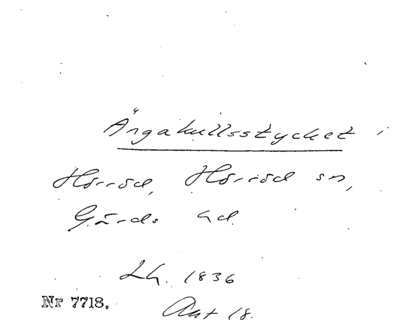 Ängakullsstycket i
Hörröd, Hörröd sn,
Gärds hd.
Lh. 1836
Nr 7718.
Akt 18.